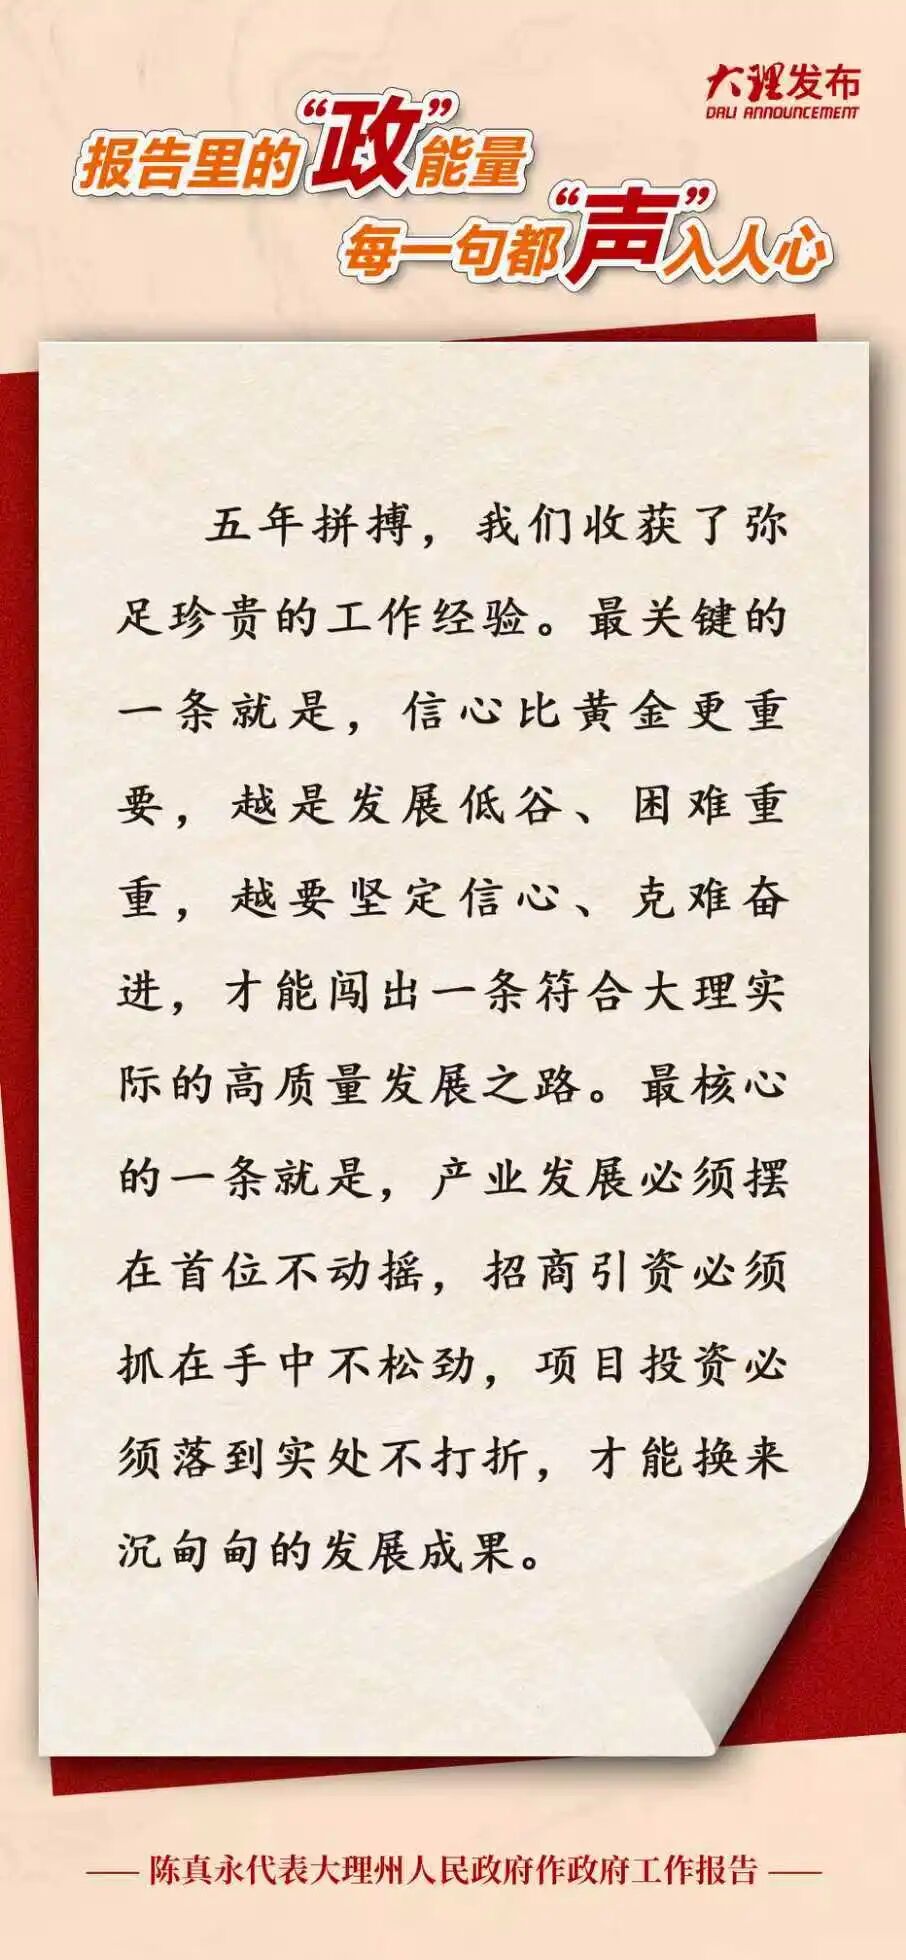 大理发布
DALI ANNOUNCEMENT
报告里的“政”能量
每一句都“声”入人心
五年拼搏，我们收获了弥
足珍贵的工作经验。最关键的
一条就是，信心比黄金更重
要，越是发展低谷、困难重
重，越要坚定信心、克难奋
进，才能闯出一条符合大理实
际的高质量发展之路。最核心
的一条就是，产业发展必须摆
在首位不动摇，招商引资必须
抓在手中不松劲，项目投资必
须落到实处不打折，才能换来
沉甸甸的发展成果。
—— 陈真永代表大理州人民政府作政府工作报告 ——